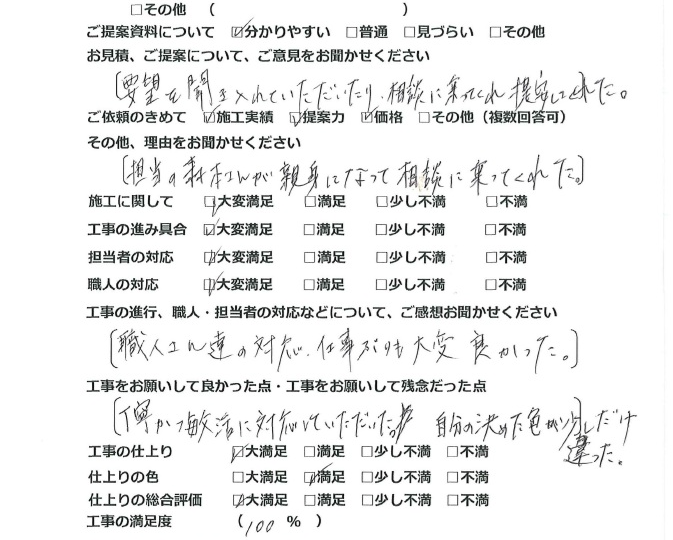 □その他 （　　　　　　　　　）
ご提案資料について ☑分かりやすい □普通 □見づらい □その他
お見積、ご提案について、ご意見をお聞かせください
［要望を聞き入れていただいたり、相談に乗ってくれ提案してくれた。
ご依頼のきめて ☑施工実績 ☑提案力 ☑価格 □その他（複数回答可）
その他、理由をお聞かせください
［担当の森本さんが親身になって相談に乗ってくれた。］
施工に関して ☑大変満足 □満足 □少し不満 □不満
工事の進み具合 ☑大変満足 □満足 □少し不満 □不満
担当者の対応 ☑大変満足 □満足 □少し不満 □不満
職人の対応 ☑大変満足 □満足 □少し不満 □不満
工事の進行、職人・担当者の対応などについて、ご感想お聞かせください
［職人さん達の対応、仕事ぶりも大変良かった。］
工事をお願いして良かった点・工事をお願いして残念だった点
［丁寧かつ敏活に対応していただいた。 自分の決めた色が少しだけ
違った。
工事の仕上り ☑大満足 □満足 □少し不満 □不満
仕上りの色 □大満足 ☑満足 □少し不満 □不満
仕上りの総合評価 ☑大満足 □満足 □少し不満 □不満
工事の満足度 （100 % ）